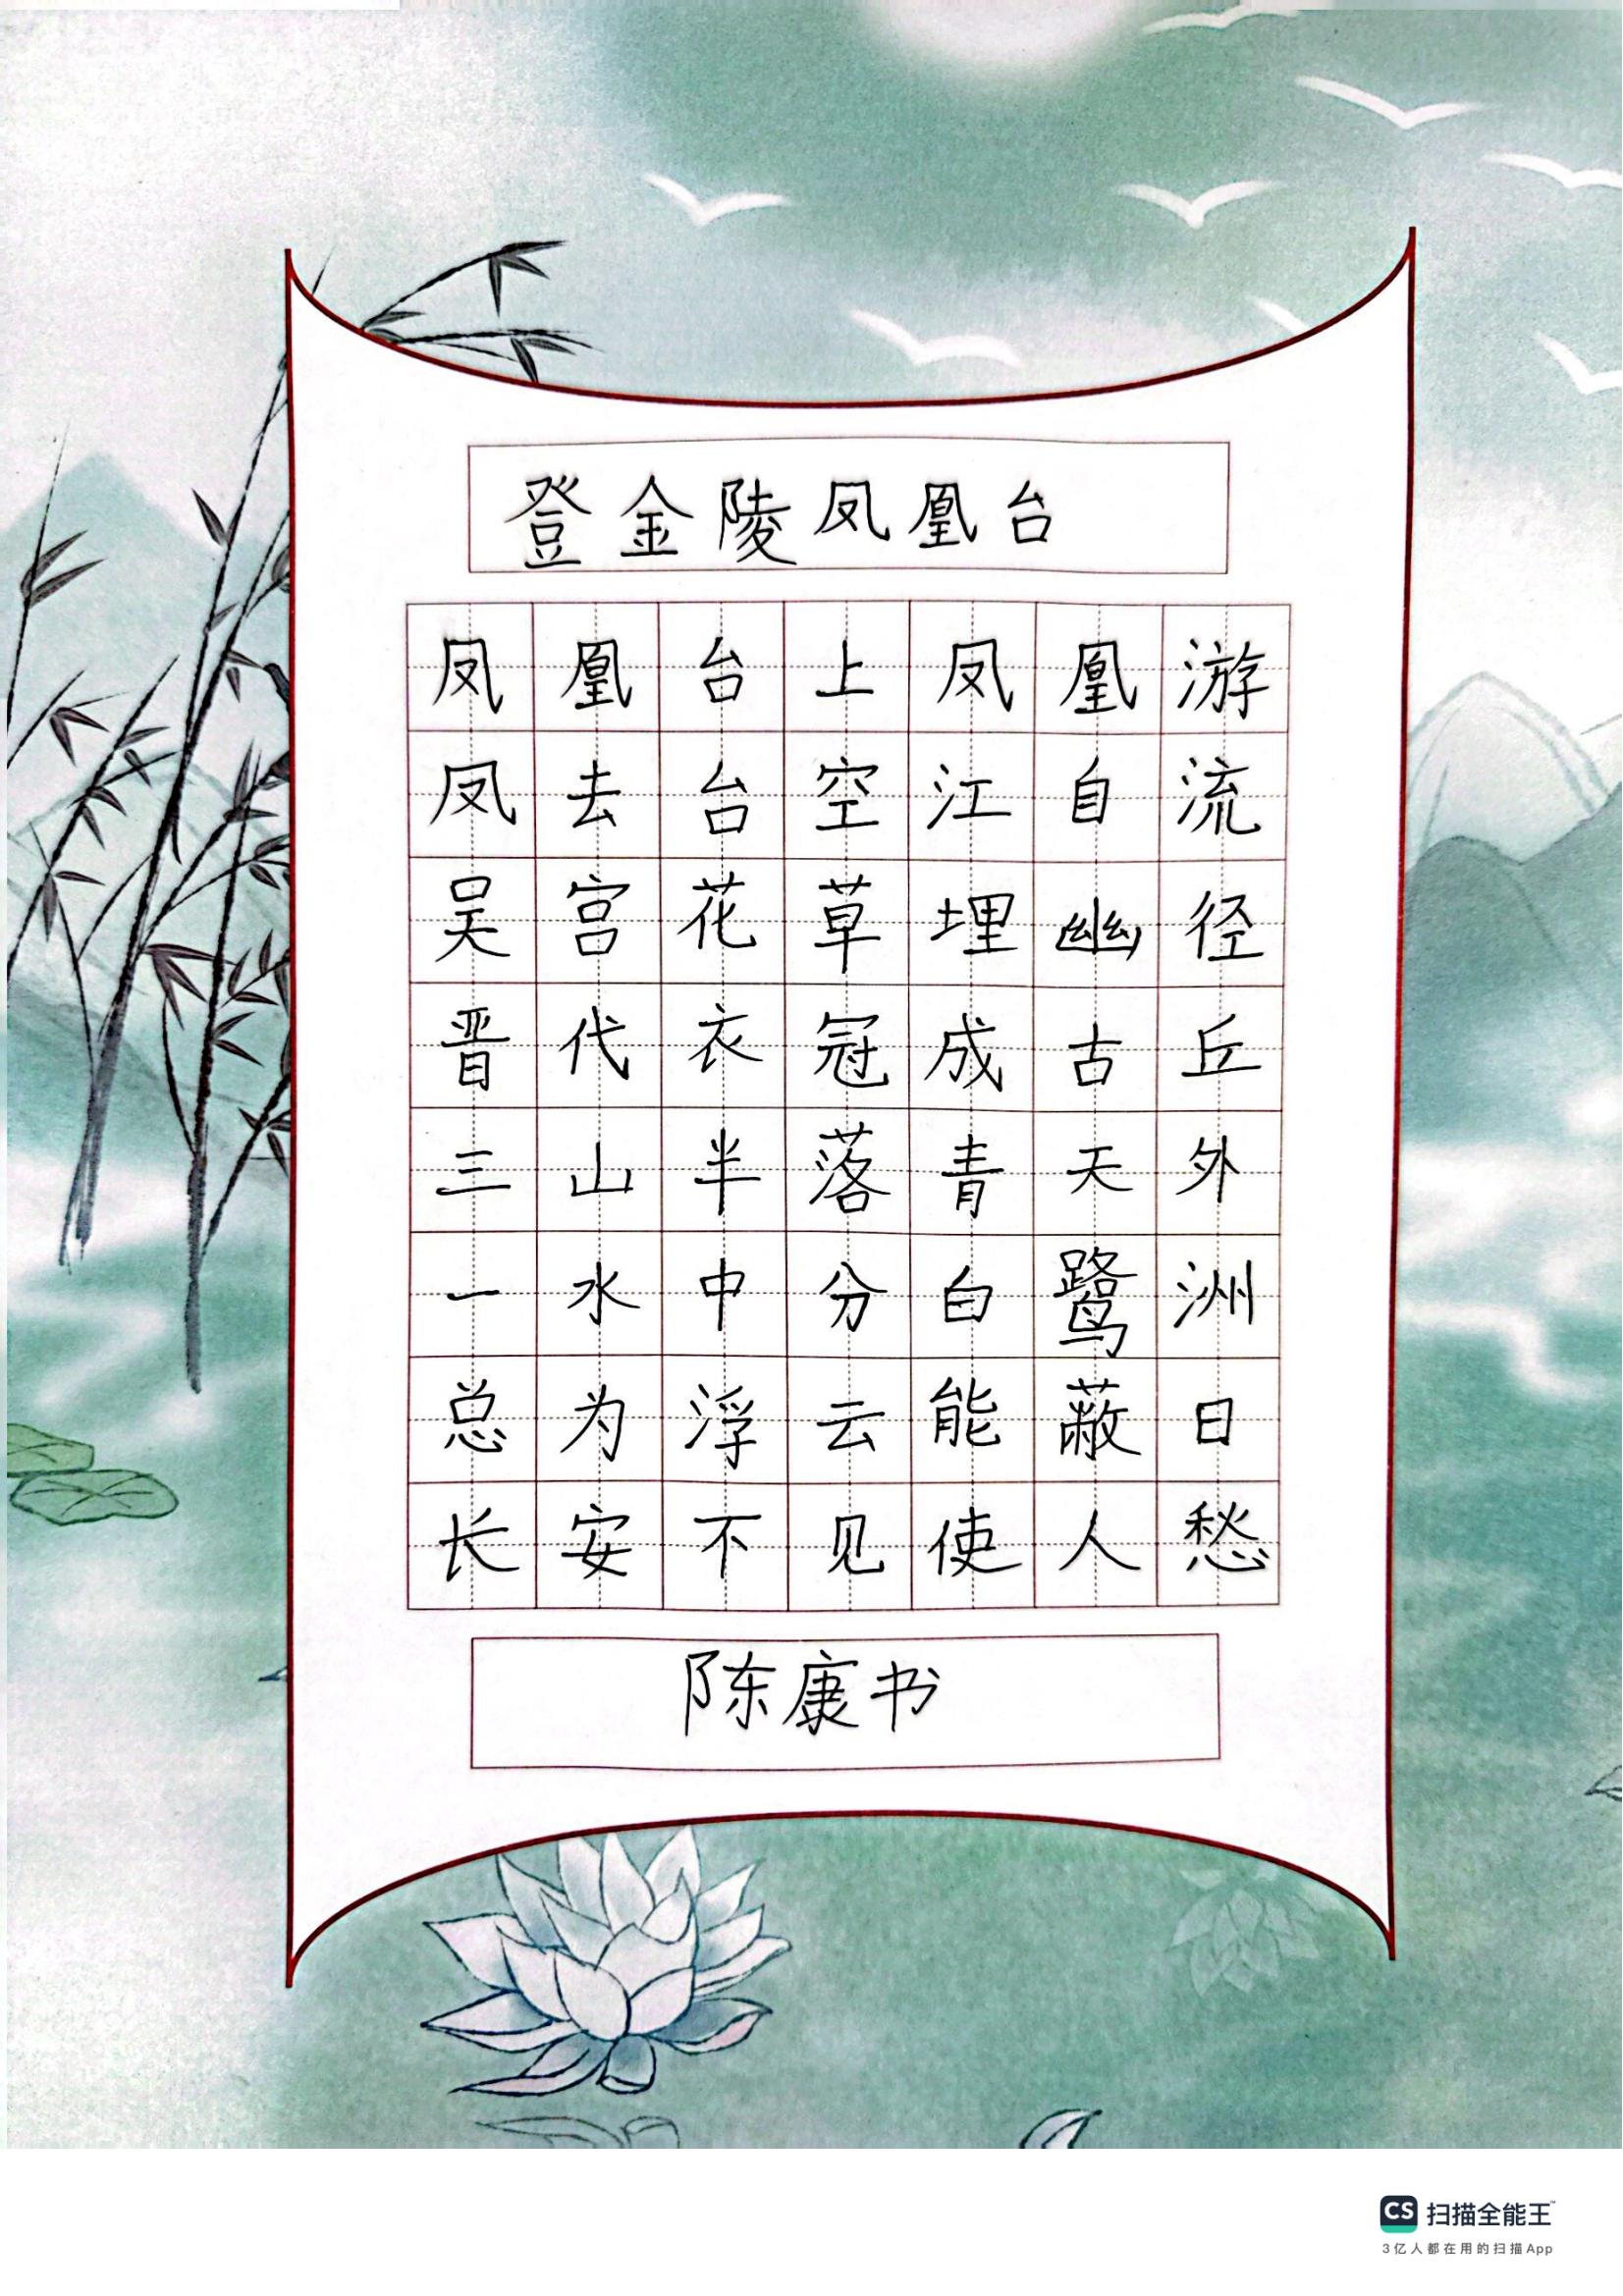 登金陵凤凰台
凤凰台上凤凰游
凤去台空江自流
吴宫花草埋幽径
晋代衣冠成古丘
三山半落青天外
一水中分白鹭洲
总为浮云能蔽日
长安不见使人愁
陈康书
CS 扫描全能王™
3亿人都在用的扫描App